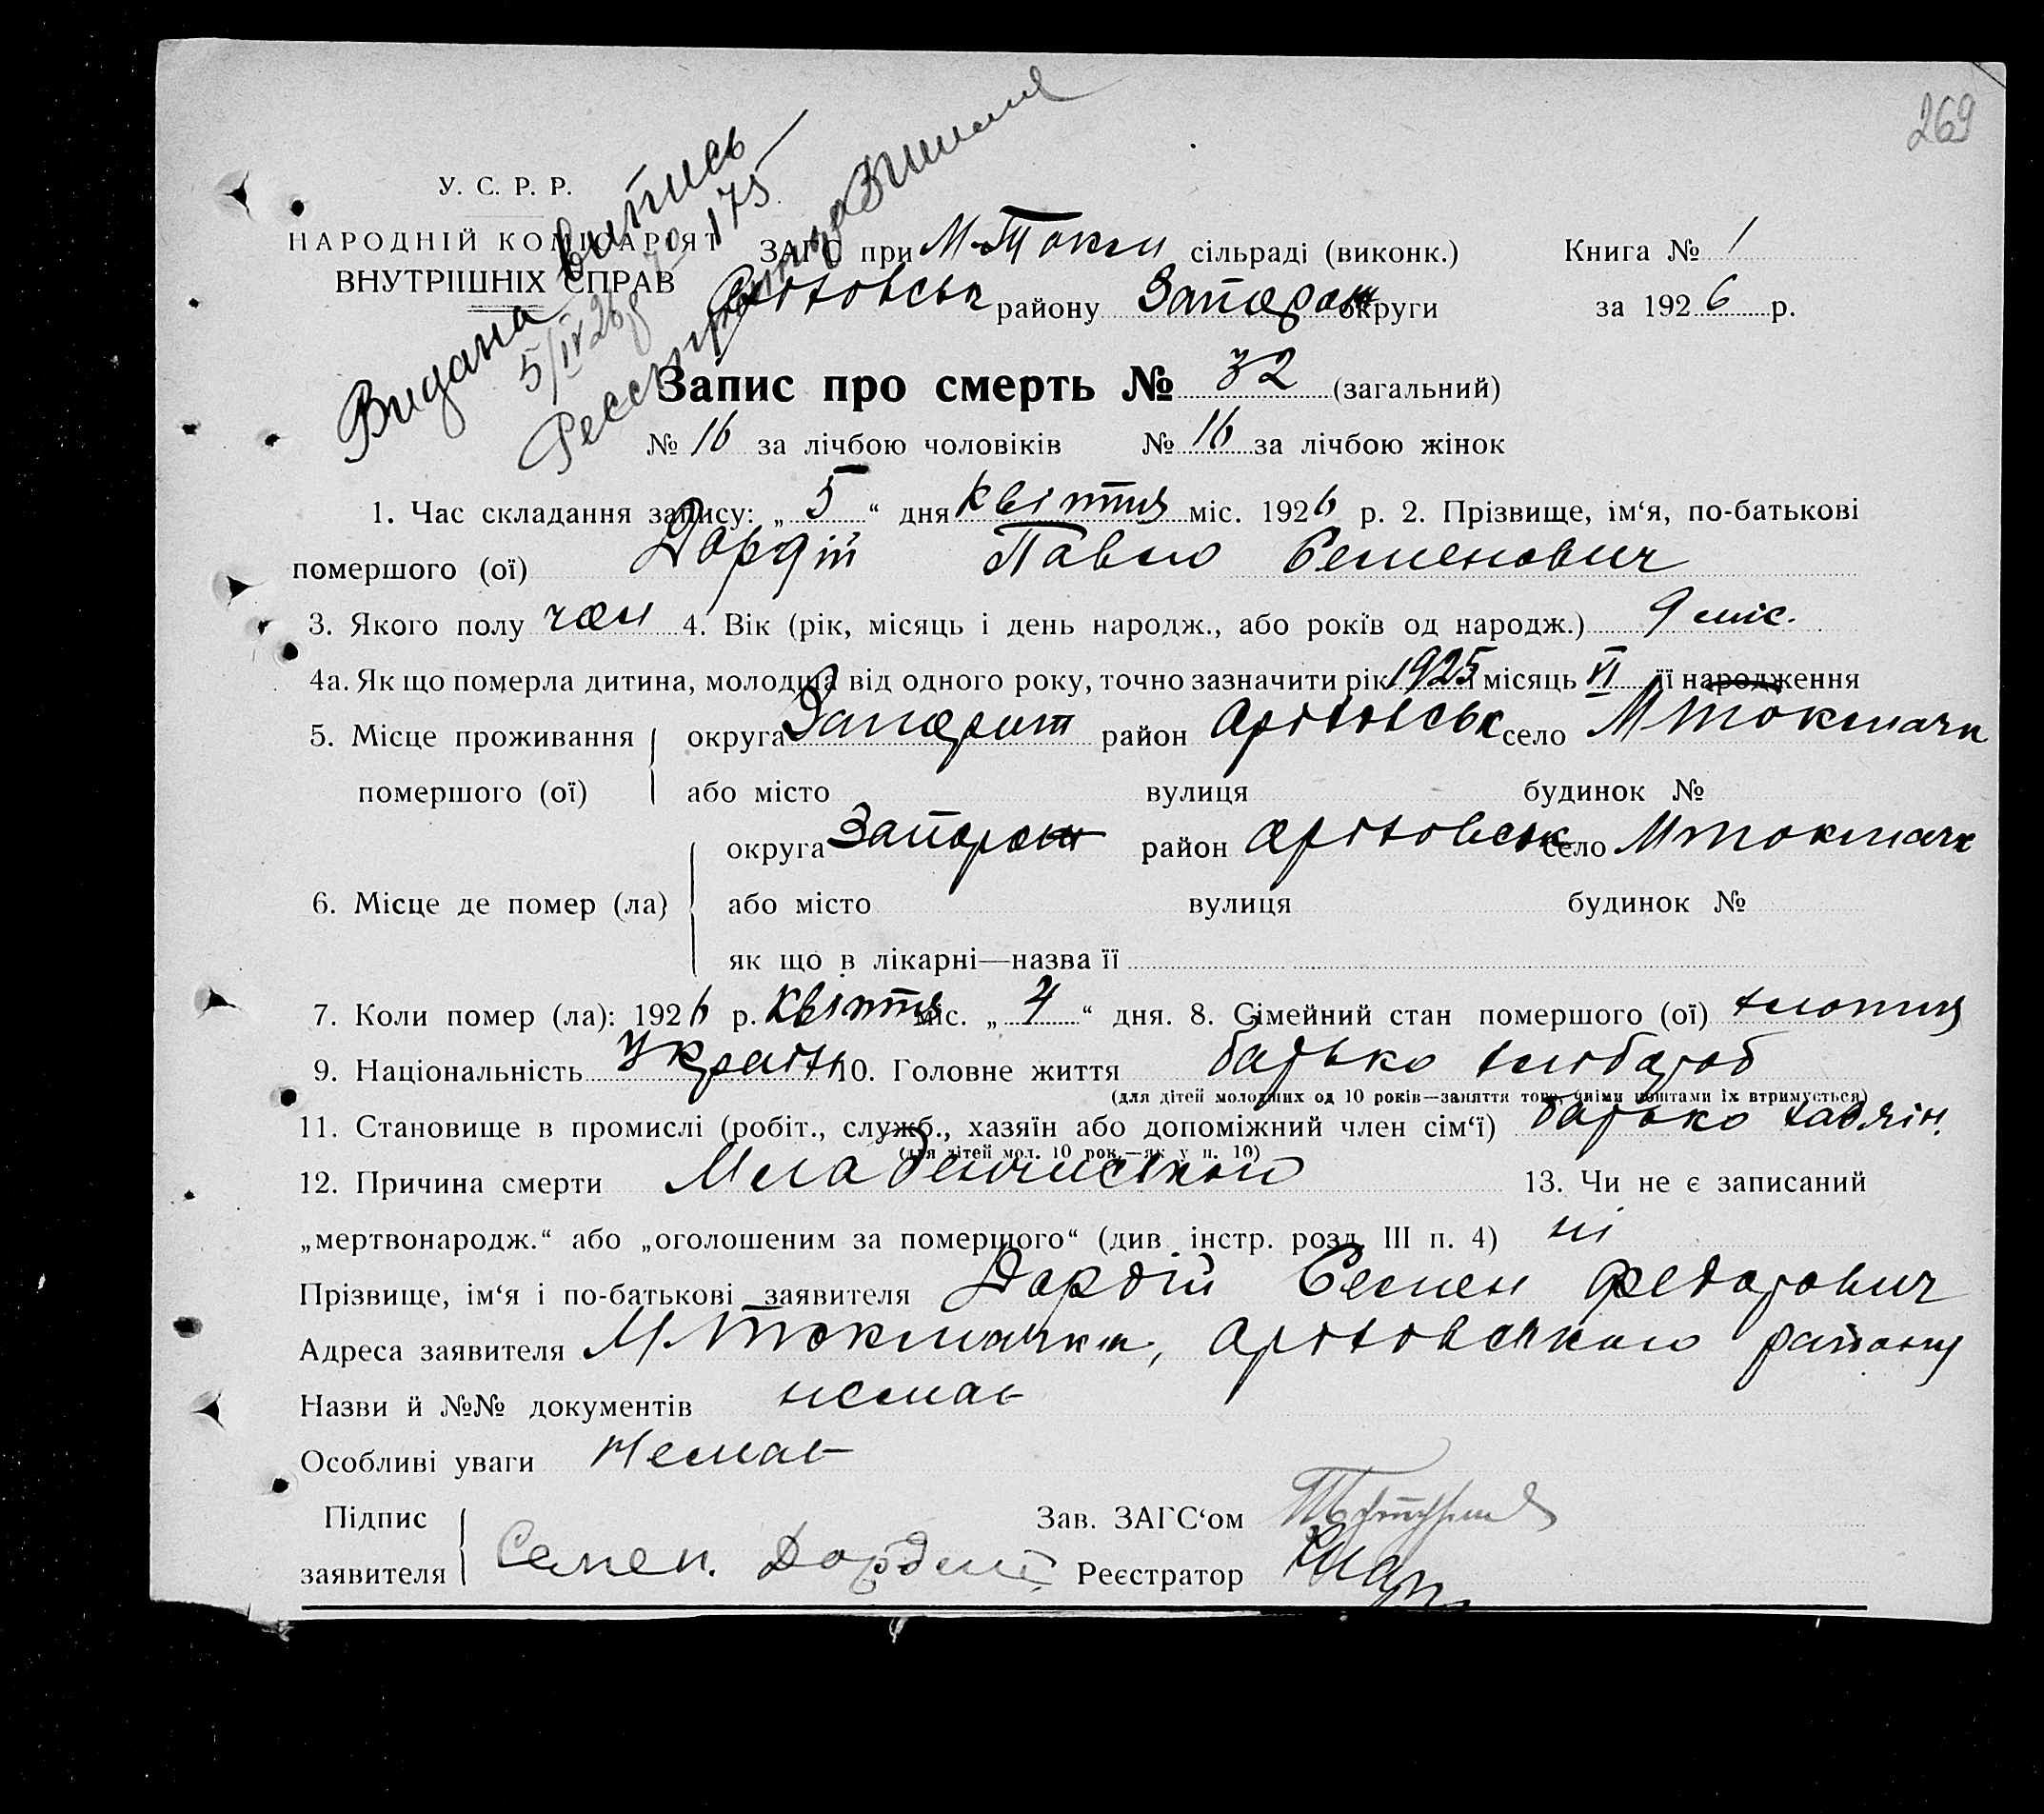 269
Видана витись
5/IV 26 р № 175
У. С. Р. Р.
НАРОДНІЙ КОМІСАРІЯТ
ВНУТРІШНІХ СПРАВ
ЗАГС при М-Токм сільраді (виконк.)
Оріховськ району Запорож округи
Книга № 1
за 1926 р.
Запис про смерть № 32 (загальний)
№ 16 за лічбою чоловіків № 16 за лічбою жінок
1. Час складання запису: „5“ дня квітня міс. 1926 р. 2. Прізвище, ім‘я, по-батькові
помершого (ої) Дордій Павло Семенович
3. Якого полу чол 4. Вік (рік, місяць і день народж., або років од народж.) 9 міс.
4а. Як що померла дитина, молодша від одного року, точно зазначити рік 1925 і місяць VI її народження
5. Місце проживання помершого (ої) округа Запорож район Оріховськ село М Токмачк
або місто вулиця будинок №
6. Місце де помер (ла) округа Запорож район Оріховськ село М Токмачк
або місто вулиця будинок №
як що в лікарні—назва її
7. Коли помер (ла): 1926 р. Квітня міс. „4“ дня. 8. Сімейний стан помершого (ої) хлопець
9. Національність Україн 10. Головне життя батько хлібороб
(для дітей молодших од 10 років—заняття того, чиїми коштами їх втримується)
11. Становище в промислі (робіт., служб., хазяїн або допоміжний член сім‘ї) батько хазяїн.
(для дітей мол. 10 рок.—як у п. 10)
12. Причина смерти 13. Чи не є записаний
„мертвонародж.“ або „оголошеним за помершого“ (див. інстр. розд. III п. 4) ні
Прізвище, ім‘я і по-батькові заявителя Дордій Семен Федорович
Адреса заявителя М Токмачка, Оріховського району
Назви й №№ документів немає
Особливі уваги Немає
Підпис заявителя Семен. Дордий
Зав. ЗАГС‘ом
Реєстратор